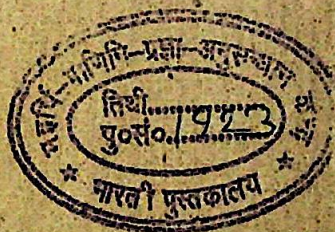 महर्षि-पाणिनि-प्रज्ञा-अनुसन्धान
तिथी..............
पु०सं०.1923
* भारती पुस्तकालय *